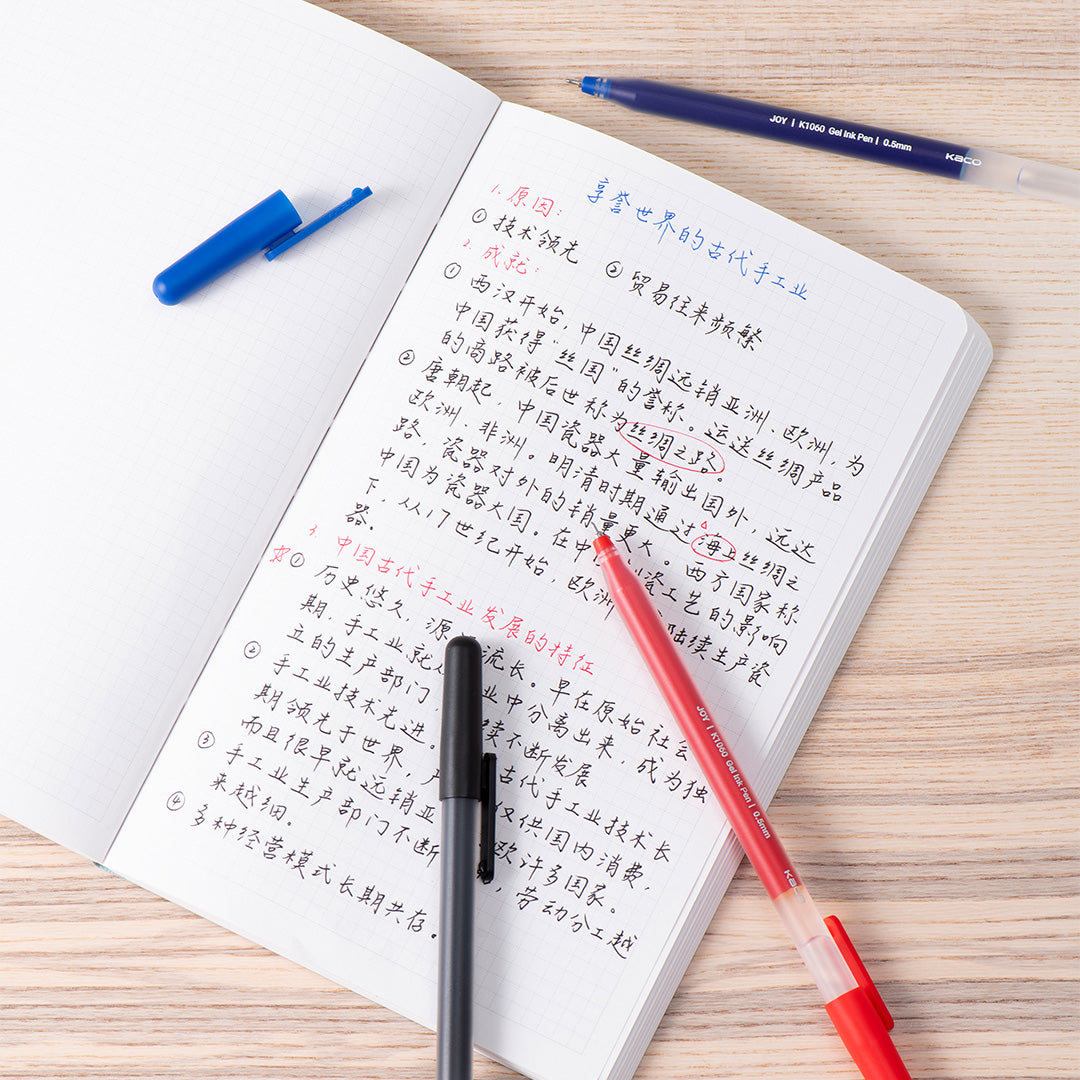 享誉世界的古代手工业
1. 原因：
① 技术领先 ② 贸易往来频繁
2. 成就：
① 西汉开始，中国丝绸远销亚洲、欧洲，为
中国获得“丝国”的誉称。运送丝绸产品
的商路被后世称为丝绸之路。
② 唐朝起，中国瓷器大量输出国外，远达
欧洲、非洲。明清时期通过海上丝绸之
路，瓷器对外的销量更大。西方国家称
中国为瓷器大国。在中 瓷工艺的影响
下，从17世纪开始，欧洲 陆续生产瓷
器.
3. 中国古代手工业发展的特征
① 历史悠久，源 流长。早在原始社会
期，手工业就从 业中分离出来，成为独
立的生产部门， 续不断发展
② 手工业技术先进。 古代手工业技术长
期领先于世界，产 仅供国内消费，
而且很早就远销亚 欧许多国家。
③ 手工业生产部门不断 ，劳动分工越
来越细.
④ 多种经营模式长期共存。
JOY | K1060 Gel Ink Pen | 0.5mm KACO
JOY | K1060 Gel Ink Pen | 0.5mm